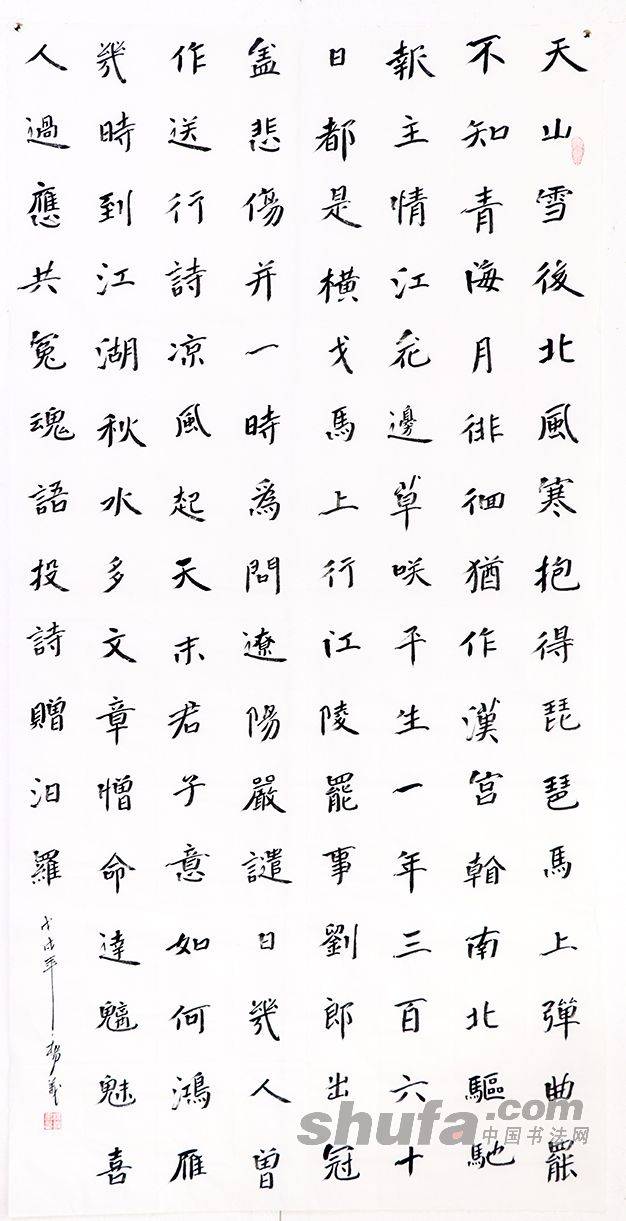 天山雪後北風寒抱得琵琶馬上彈曲罷
不知青海月徘徊猶作漢宮看南北驅馳
報主情江花邊草咲平生一年三百六十
日都是橫戈馬上行江陵罷事劉郎出冠
盖悲傷并一時爲問遼陽嚴譴日幾人曾
作送行詩凉風起天末君子意如何鴻雁
幾時到江湖秋水多文章憎命達魑魅喜
人過應共冤魂語投詩贈汨羅
戊戌年
shufa.com
中国书法网